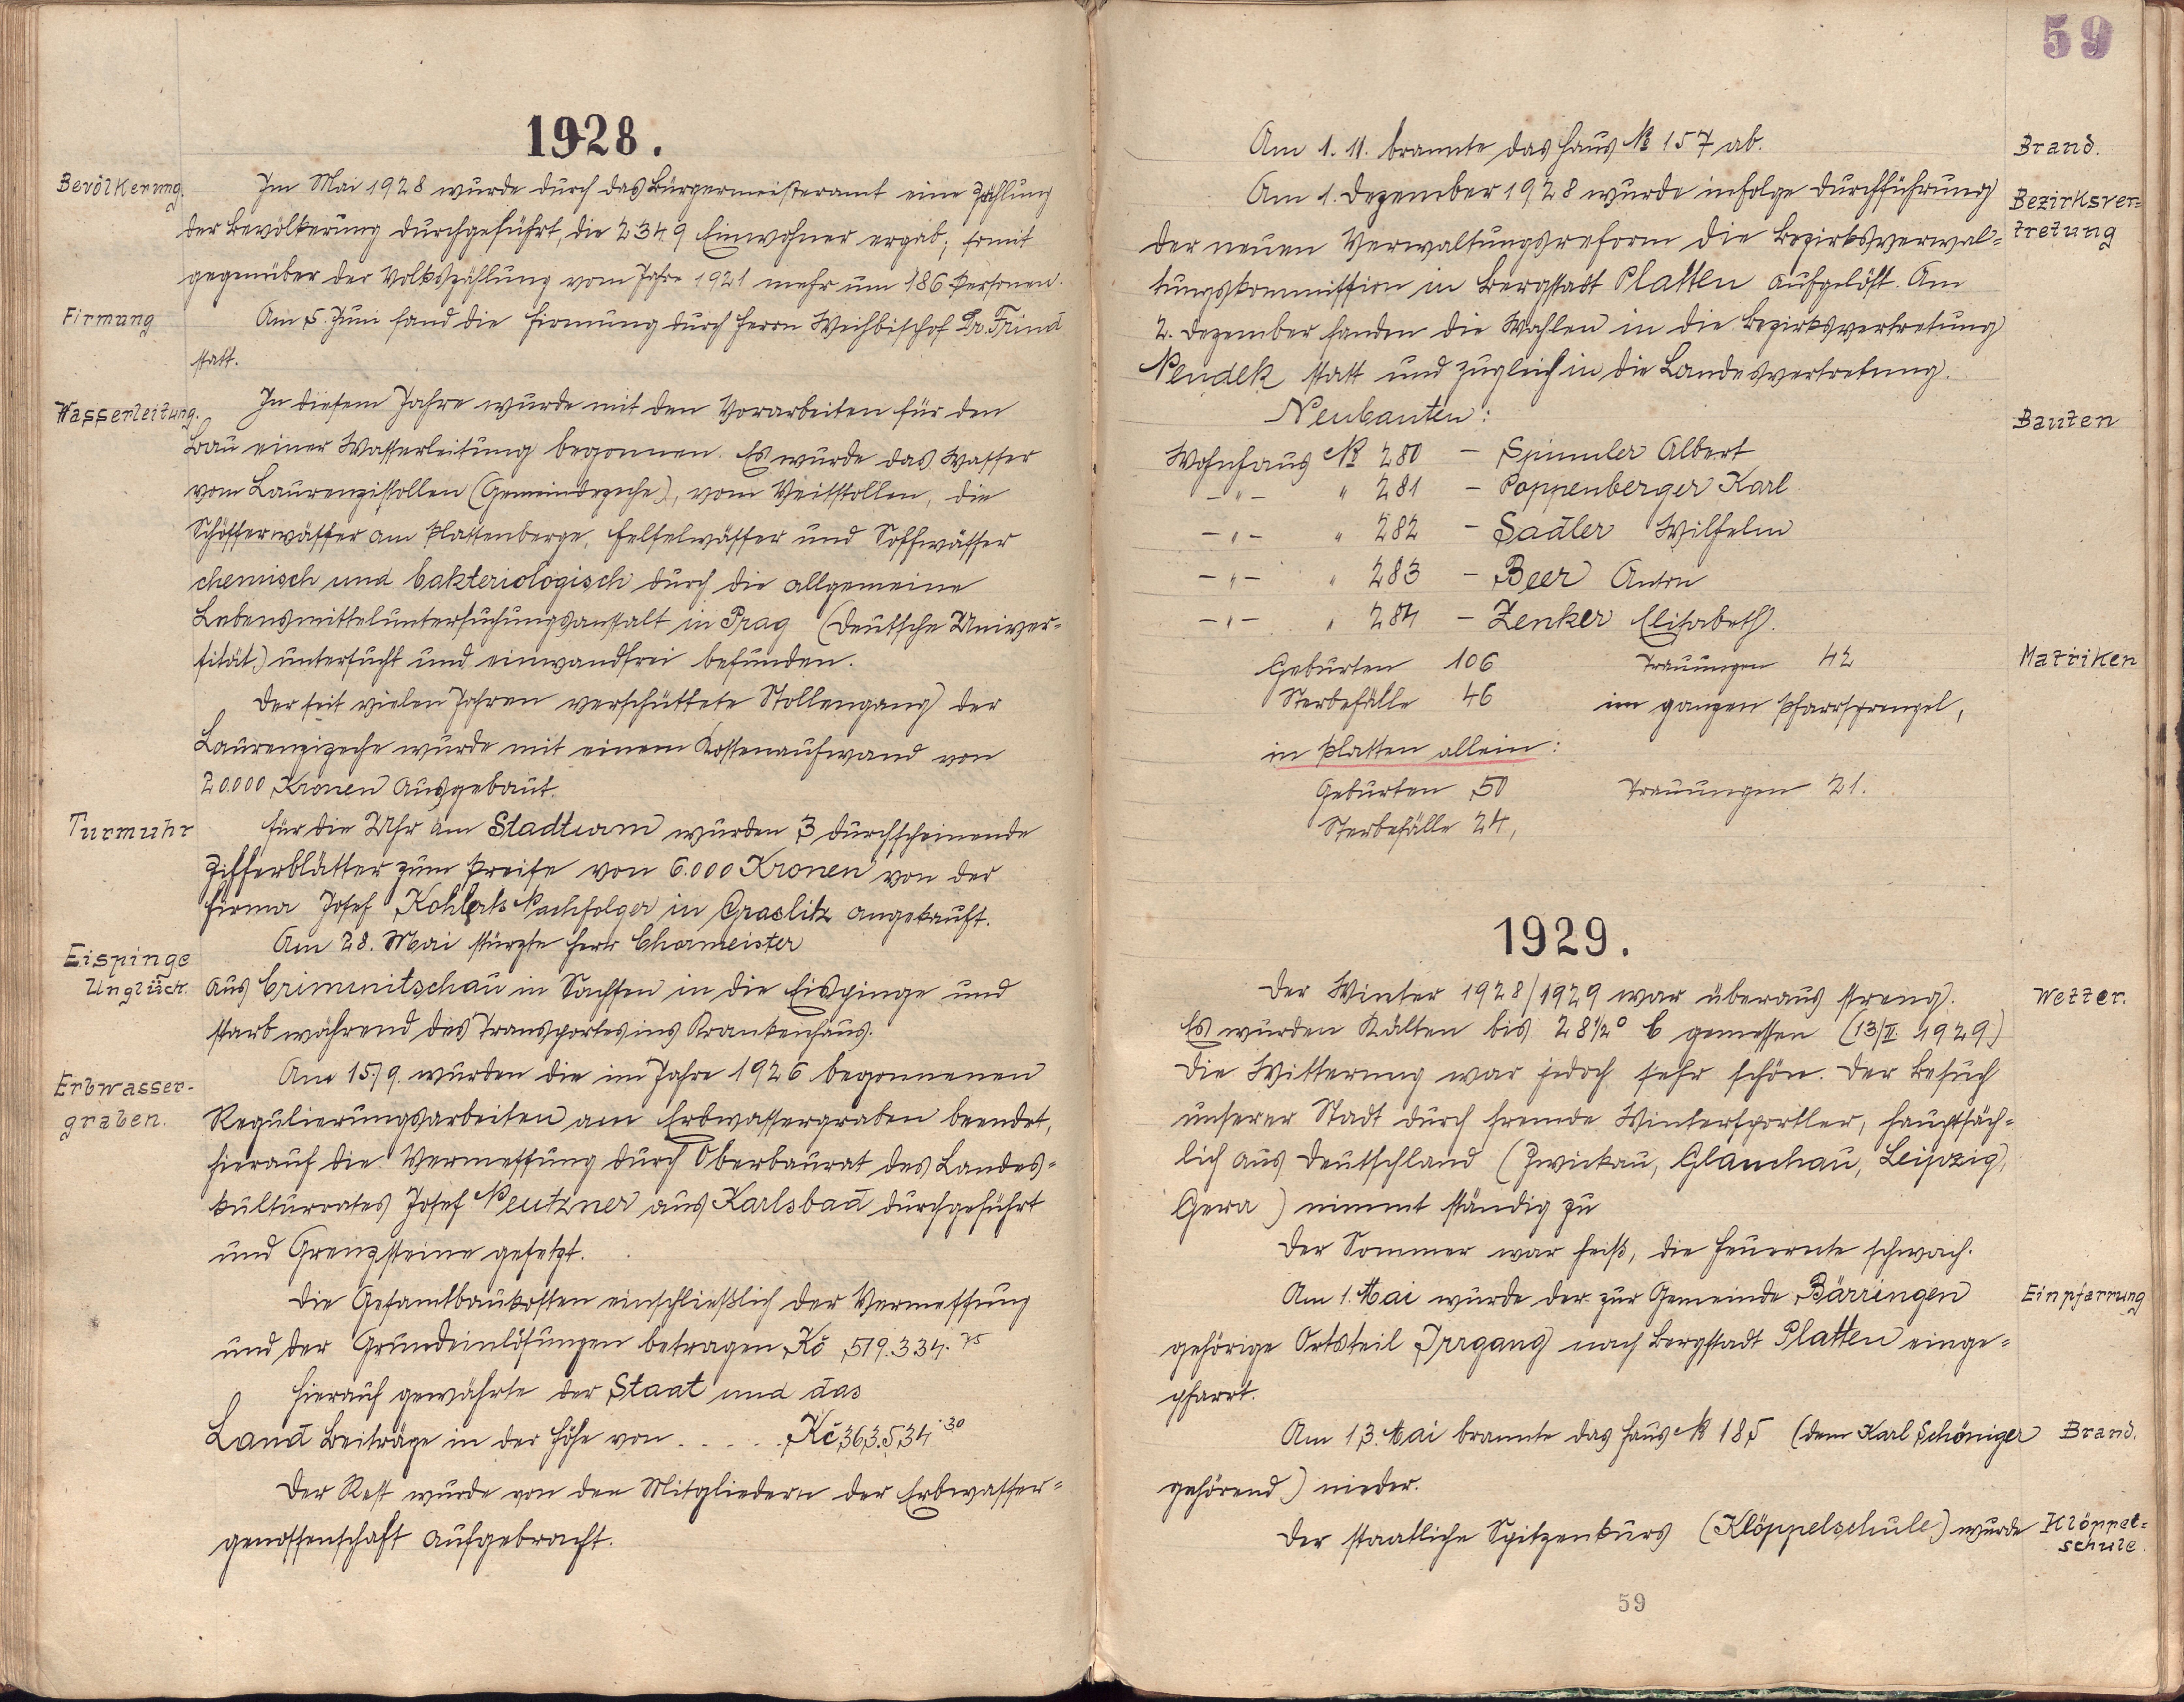 1928.
Bevölkerung.
Im Mai 1928 wurde durch das Bürgermeisteramt eine Zählung
der Bevölkerung durchgeführt, die 2349 Einwohner ergab; somit
gegenüber der Volkszählung vom Jahre 1921 mehr um 186 Personen.
Firmung
Am 5. Juni fand die Firmung durch Herrn Weihbischof Dr. Frind
statt.
Wasserleitung.
In diesem Jahre wurde mit den Vorarbeiten für den
Bau einer Wasserleitung begonnen. Es wurde das Wasser
vom Laurenzistollen (Gemeindezeche), vom Veitstollen, die
Schösserwässer am Plattenberge, und
chemisch und bakteriologisch durch die allgemeine
Lebensmitteluntersuchungsanstalt in Prag (Deutsche Univer=
sität) untersucht und einwandfrei befunden.
Der seit vielen Jahren verschüttete Stollengang der
Laurenzizeche wurde mit einem Kostenaufwand von
20.000 Kronen ausgebaut.
Turmuhr
Für die Uhr am Stadtturm wurden 3 durchscheinende
Zifferblätter zum Preise von 6.000 Kronen von der
Firma Josef Kohlerts Nachfolger in Graslitz angekauft.
Eispinge
Unglück.
Am 28. Mai stürzte Herr Chormeister
aus Crimmitschau in Sachsen in die Eispinge und
starb während des Transportes ins Krankenhaus.
Erbwasser-
graben.
Am 15./9. wurden die im Jahre 1926 begonnenen
Regulierungsarbeiten am Erbwassergraben beendet,
hierauf die Vermessung durch Oberbaurat des Landes=
kulturrates Josef Peutzner aus Karlsbad durchgeführt
und Grenzsteine gesetzt.
Die Gesamtbaukosten einschließlich der Vermessung
und der Grundeinlösungen betragen Kč 519.334.75
Hierauf gewährte der Staat und das
Land Beiträge in der Höhe von ..... Kč 363.534.30
Der Rest wurde von den Mitgliedern der Erbwasser=
genossenschaft aufgebracht.
59
Am 1. 11. brannte das Haus № 157 ab.
Brand.
Am 1. Dezember 1928 wurde infolge Durchführung
Bezirksver=
tretung
der neuen Verwaltungsreform die Bezirksverwal=
tungskommission in Bergstadt Platten aufgelöst. Am
2. Dezember fanden die Wahlen in die Bezirksvertretung
Neudek statt und zugleich in die Landesvertretung.
Neubauten:
Bauten
Wohnhaus № 280 – Spinnler Albert
–"– " 281 – Poppenberger Karl
–"– " 282 – Sadler Wilhelm
–"– " 283 – Beer Anton
–"– " 284 – Zenker Elisabeth.
Geburten 106 Trauungen 42
Matriken
Sterbefälle 46 im ganzen Pfarrsprengel,
in Platten allein:
Geburten 50 Trauungen 21.
Sterbefälle 24,
1929.
Der Winter 1928/1929 war überaus streng.
Wetter.
Es wurden Kälten bis 28½° C gemessen (13/II. 1929)
Die Witterung war jedoch sehr schön. Der Besuch
unserer Stadt durch fremde Wintersportler, hauptsäch=
lich aus Deutschland (Zwickau, Glauchau, Leipzig,
Gera) nimmt ständig zu
Der Sommer war heiß, die Heuernte schwach.
Am 1. Mai wurde der zur Gemeinde Bärringen
Einpfarrung
gehörige Ortsteil Irrgang nach Bergstadt Platten einge=
pfarrt.
Am 13. Mai brannte das Haus № 185 (dem Karl Schöniger
Brand.
gehörend) nieder.
Der staatliche Spitzenkurs (Klöppelschule) wurde
Klöppel=
schule.
59